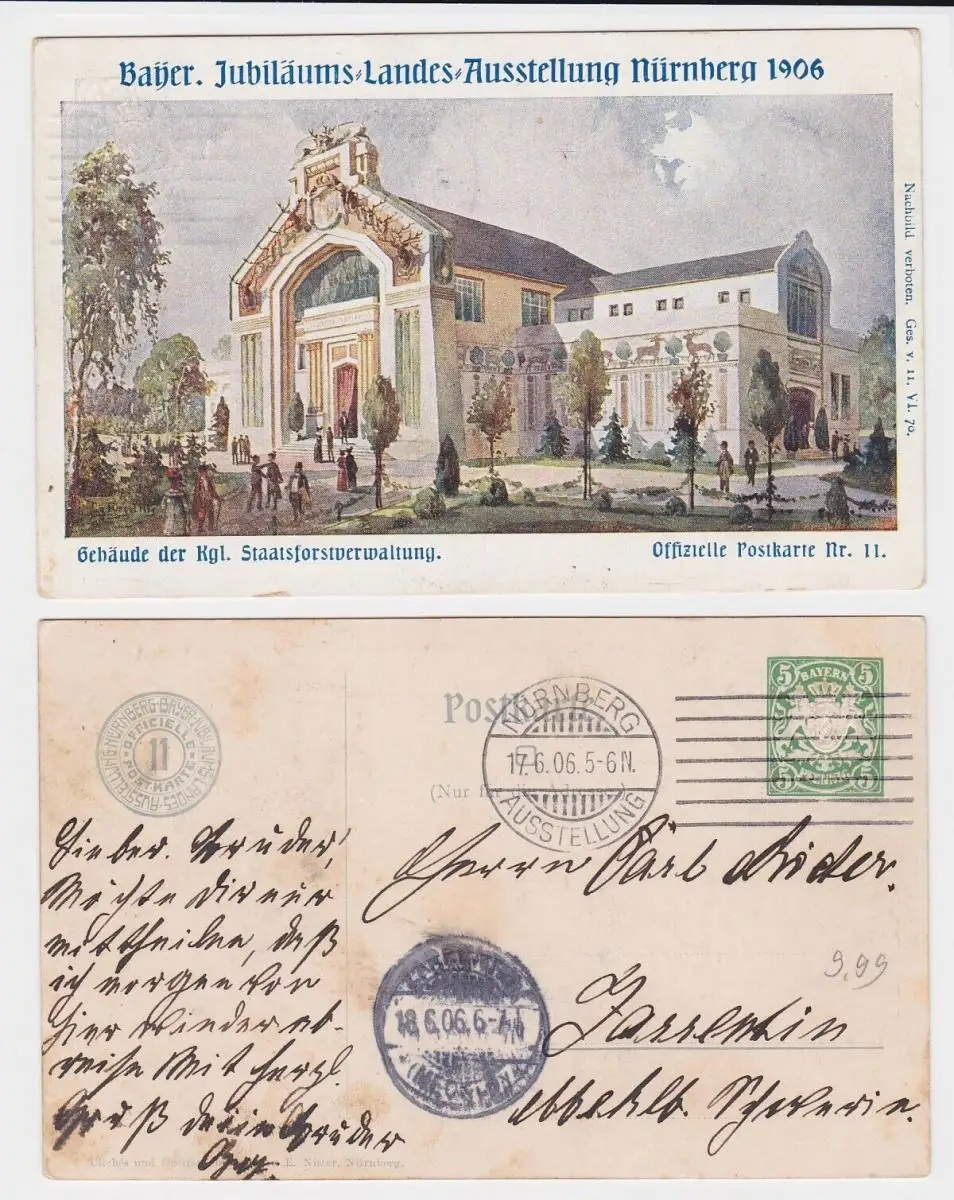 Bayer. Jubiläums-Landes-Ausstellung Nürnberg 1906
Nachbild. verboten. Ges. v. 11. VI. 70.
Gebäude der Kgl. Staatsforstverwaltung.
Offizielle Postkarte Nr. 11.
NÜRNBERG-BAYER-JUBILÄUMS-LANDES-AUSSTELLUNG
OFFICIELLE
11
POSTKARTE
Postkarte
(Nur für die Adresse)
NÜRNBERG
17.6.06.5-6N.
AUSSTELLUNG
5 BAYERN 5
5 5
Lieber Bruder!
Möchte Dir nur
mittheilen, daß
ich morgen von
hier wieder ab-
reise Mit herzl.
Gruß dein Bruder
Herrn Carl
9,99
Zarrentin
Schwerin.
18.6.06.6-7
Clichés und E. Nister, Nürnberg.